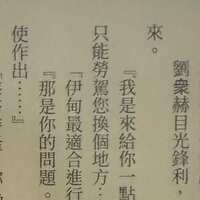 來。
劉衆赫目光鋒利，
『我是來給你一點
只能勞駕您換個地方…
『伊甸最適合進行
『那是你的問題。
使作出……』